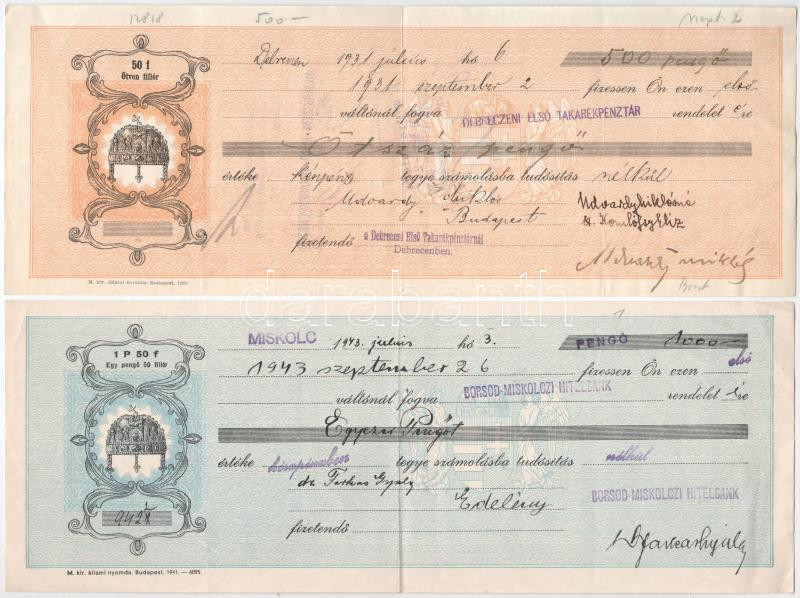 12818 500— 
50 f
Ötven fillér
Debrecen 1931 július hó 6 500 pengő
1931 szeptember 2 fizessen Ön ezen első
váltónál fogva DEBRECZENI ELSŐ TAKARÉKPÉNZTÁR rendelet ére
Ötszáz pengő
értéke készpénz tegye számolásba tudósítás nélkül
Udvardy Miklós
Budapest
Udvardy Miklósné
fizetendő a Debreceni Első Takarékpénztárnál
Debrecenben.
Udvardy Miklós
M. kir. állami nyomda. Budapest, 1930.
darabanth
1 P 50 f
Egy pengő 50 fillér
MISKOLC 1943. július hó 3. PENGŐ 1000—
1943 szeptember 26 fizessen Ön ezen első
váltónál fogva BORSOD-MISKOLCZI HITELBANK rendelet ére
Egyezer Pengőt
értéke készpénzben tegye számolásba tudósítás nélkül
dr Farkas Gyula
BORSOD-MISKOLCZI HITELBANK
Edelény
fizetendő
M. kir. állami nyomda. Budapest, 1941. — 6095.